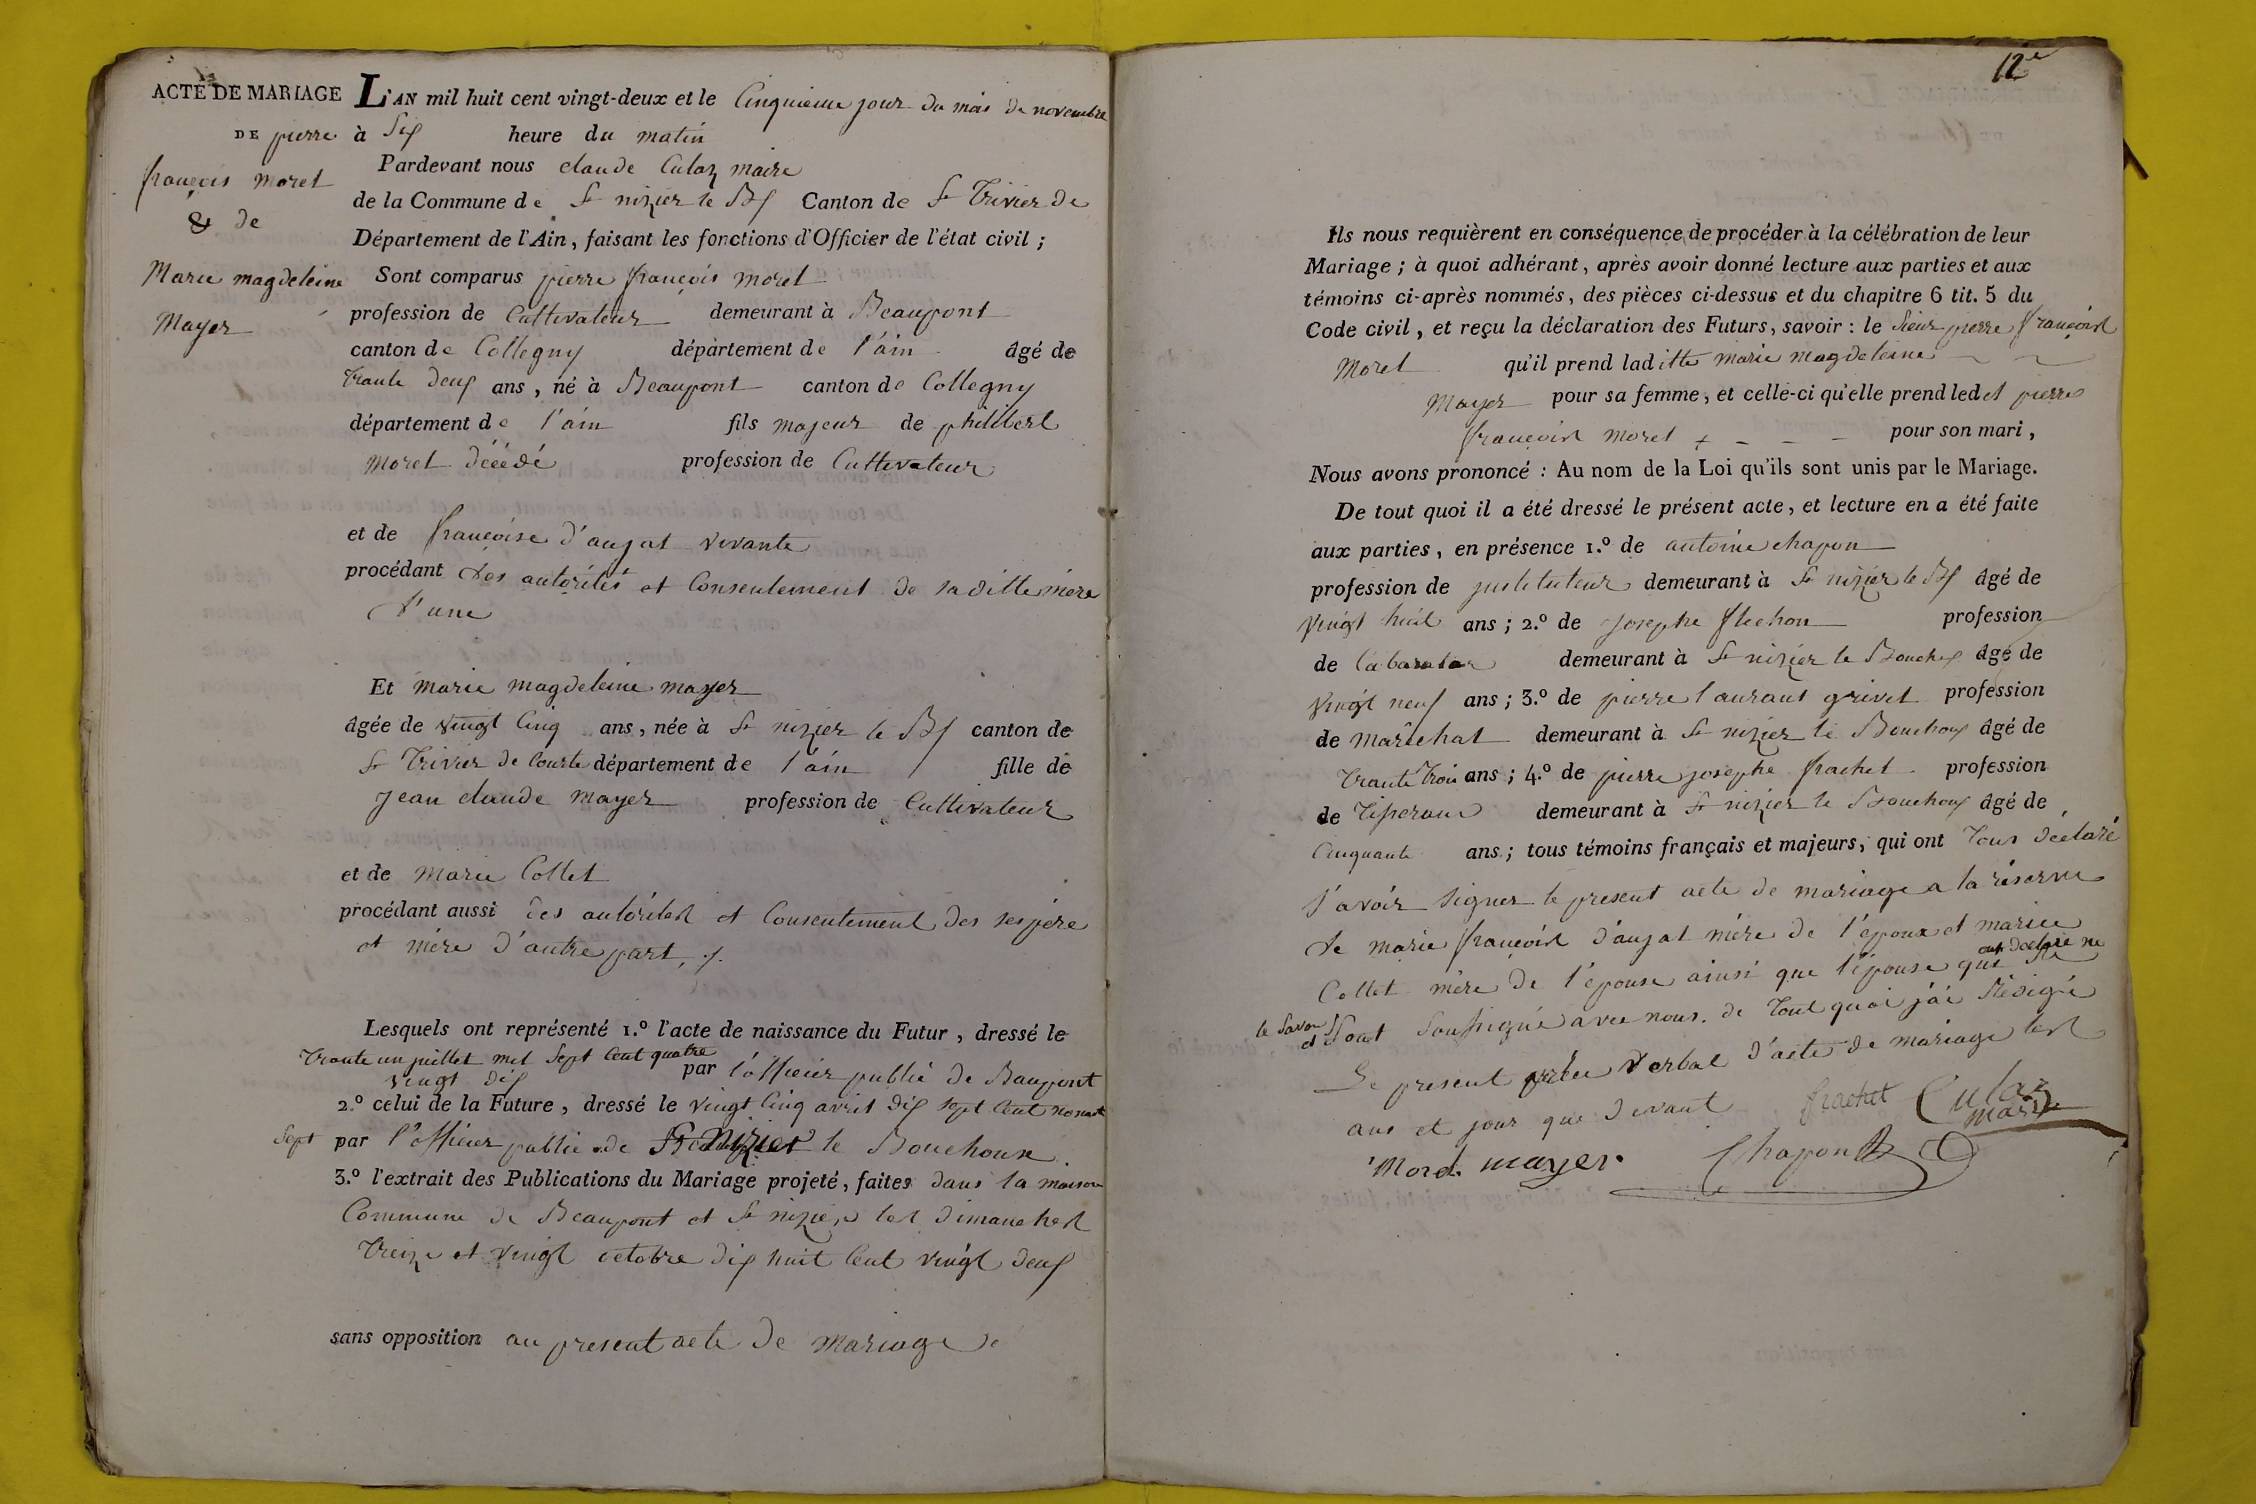 ACTE DE MARIAGE
DE pierre
françois moret
& de
Marie magdeleine
Mayer
L'AN mil huit cent vingt-deux et le Cinquieme jour du mois de novembre
à Six heure du matin
Pardevant nous claude Culaz maire
de la Commune de St nizier le Bx Canton de St Trivier de
Département de l'Ain, faisant les fonctions d'Officier de l'état civil ;
Sont comparus pierre françois moret
profession de Cultivateur demeurant à Beaupont
canton de Collegny département de l'ain âgé de
trante deux ans, né à Beaupont canton de Collegny
département de l'ain fils majeur de philibert
moret décédé profession de Cultivateur
et de françoise d'aujat vivante
procédant des autorités et Consentement de sa ditte mère
d'une
Et marie magdeleine mayer
âgée de vingt Cinq ans, née à St nizier le Bx canton de
St Trivier de Courte département de l'ain fille de
Jean claude mayer profession de Cultivateur
et de marie Collet
procédant aussi des autorités et Consentement des ses père
et mère d'autre part, ./.
Lesquels ont représenté 1.º l'acte de naissance du Futur, dressé le
trante un juillet mil Sept Cent quatre
vingt dix par l'officier public de Baupont
2.º celui de la Future, dressé le vingt Cinq avril dix sept Cent nonante
Sept par l'officier public de St Nizier le Bouchoux
3.º l'extrait des Publications du Mariage projeté, faites dans la maison
Commune de Beaupont et St nizier les dimanches
treize et vingt octobre dix huit Cent vingt deux
sans opposition au present acte de mariage
12e
Ils nous requièrent en conséquence de procéder à la célébration de leur
Mariage ; à quoi adhérant, après avoir donné lecture aux parties et aux
témoins ci-après nommés, des pièces ci-dessus et du chapitre 6 tit. 5 du
Code civil, et reçu la déclaration des Futurs, savoir : le Sieur pierre françois
Moret qu'il prend laditte marie magdeleine
Mayer pour sa femme, et celle-ci qu'elle prend ledet pierre
françois moret pour son mari,
Nous avons prononcé : Au nom de la Loi qu'ils sont unis par le Mariage.
De tout quoi il a été dressé le présent acte, et lecture en a été faite
aux parties, en présence 1.º de antoine chapon
profession de justituteur demeurant à St nizier le Bx âgé de
vingt huit ans ; 2.º de josephe flechon profession
de labarater demeurant à St nizier le Bouchx âgé de
vingt neuf ans ; 3.º de pierre laurant grivet profession
de marêchal demeurant à St nizier le Bouchoux âgé de
trante trois ans ; 4.º de pierre josephe frachet profession
de Tiseran demeurant à St nizier le Bouchoux âgé de
Cinquante ans ; tous témoins français et majeurs, qui ont tous déclaré
s'avoir signer le present acte de mariage a la réserve
de marie françoise d'aujat mère de l'époux et marie
Collet mère de l'épouse ainsi que l'épouse qui ont declaré ne
le savoir et sont soussigné avec nous. de tout quoi j'ai Rédigé
Le present procèe verbal d'acte de mariage les
ans et jour que devant frachet Culaz
maire
Moret mayer Chapon